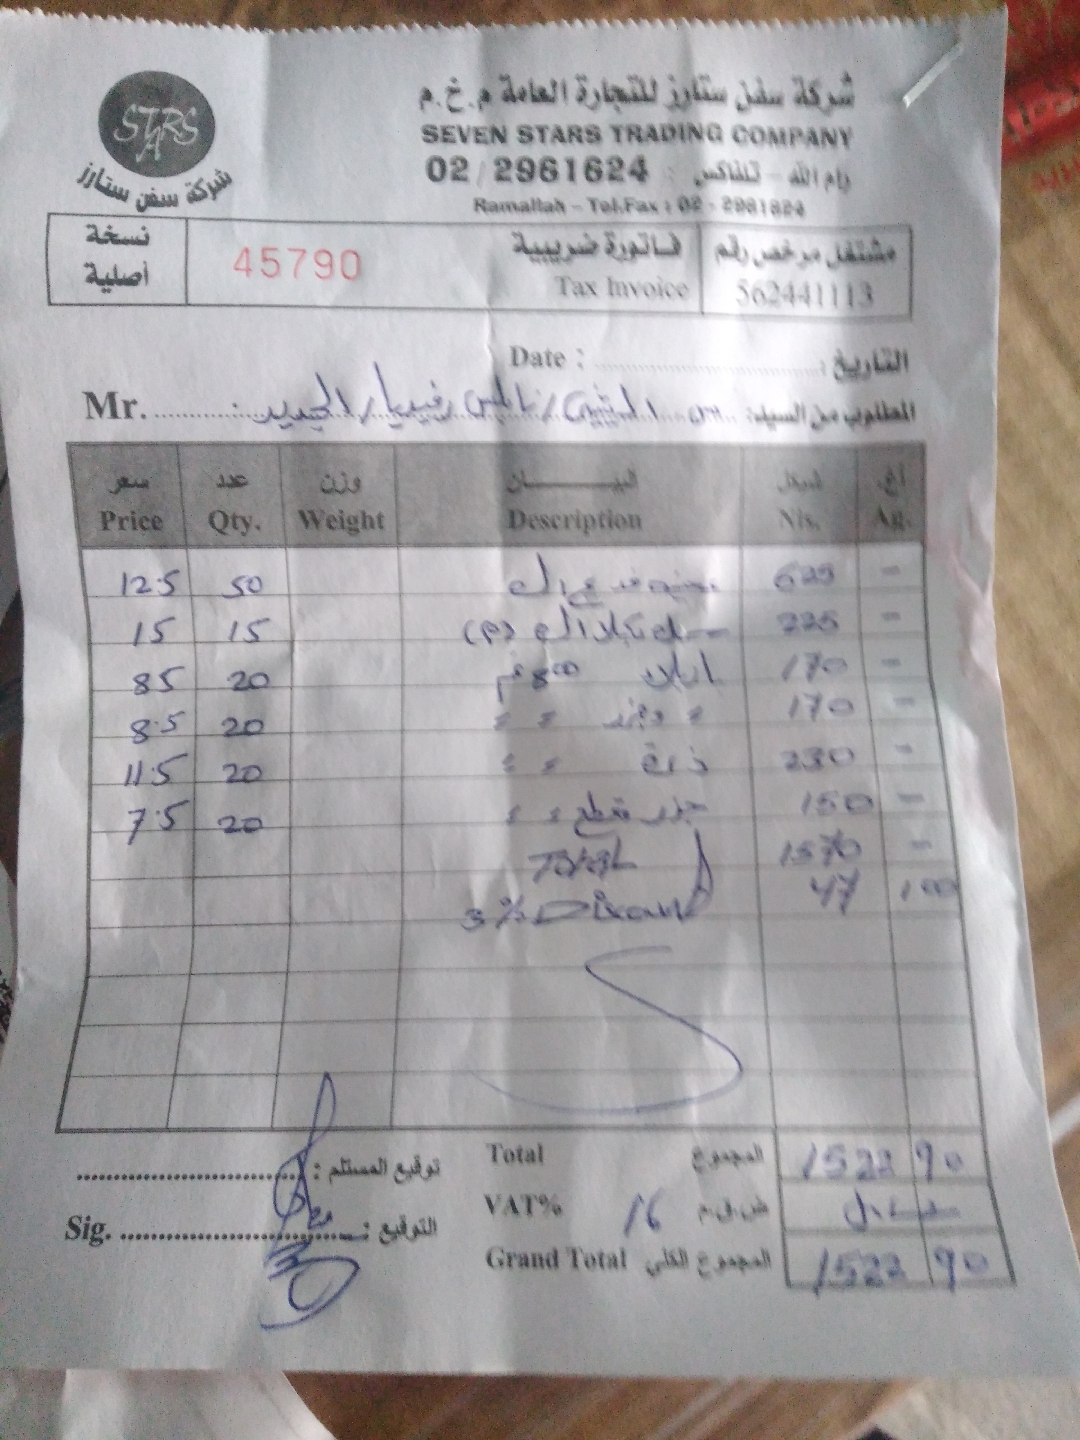 STARS
شركة سفن ستارز
شركة سفن ستارز للتجارة العامة م.خ.م
SEVEN STARS TRADING COMPANY
رام الله - تلفاكس : 02/2961624
Ramallah - Tel.Fax : 02 - 2961624
مشتغل مرخص رقم
562441113
فاتورة ضريبية
Tax Invoice
45790
نسخة أصلية
Date : التاريخ :
Mr. المطلوب من السيد: نابلس رفيديا / الجديد
سعر Price عدد Qty. وزن Weight البيان Description شيكل Nis. أغ. Ag.
12.5 50 625 -
15 15 225 -
8.5 20 800 غم 170 -
8.5 20 " " 170 -
11.5 20 ذرة " " 230 -
7.5 20 جزر مقطع " " 150 -
Total 1570 -
3% Discount 47 100
توقيع المستلم : Total المجموع 1522 90
Sig. التوقيع : VAT% 16 ض.ق.م
Grand Total المجموع الكلي 1522 90